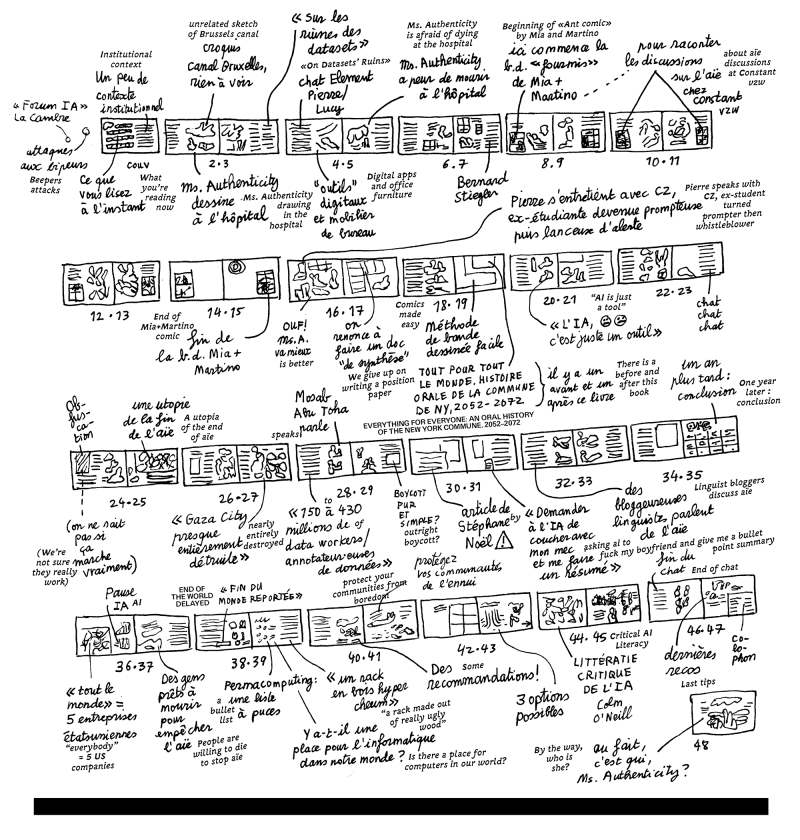 unrelated sketch
of Brussels canal
croquis
canal Bruxelles,
rien à voir
« Sur les
ruines des
datasets »
«On Datasets' Ruins»
chat Element
Pierre/
Lucy
Ms. Authenticity
is afraid of dying
at the hospital
Ms. Authenticity
a peur de mourir
à l'hôpital
Beginning of «Ant comic»
by Mia and Martino
ici commence la
b.d. «fourmis»
de Mia +
Martino
pour raconter
les discussions
sur l'aïe
chez
constant
vzw
about aïe
discussions
at Constant
vzw
Institutional
context
Un peu de
contexte
institutionnel
« Forum IA »
La Cambre
attaques
aux bipeurs
Beepers
attacks
COUV
2·3
4·5
6·7
8·9
10·11
Ce que
vous lisez
à l'instant
What
you're
reading
now
Ms. Authenticity
dessine
à l'hôpital
Ms. Authenticity
drawing
in the
hospital
"outils"
digitaux
et mobilier
de bureau
Digital apps
and office
furniture
Bernard
Stiegler
Pierre s'entretient avec CZ,
ex-étudiante devenue prompteuse
puis lanceuse d'alerte
Pierre speaks with
CZ, ex-student
turned
prompter then
whistleblower
12·13
14·15
16·17
18·19
20·21
22·23
End of
Mia+Martino
comic
fin de
la b.d. Mia +
Martino
OUF!
Ms. A.
va mieux
is better
on
renonce à
faire un doc
"de synthèse"
We give up on
writing a position
paper
Comics
made
easy
Méthode
de bande
dessinée facile
TOUT POUR TOUT
LE MONDE. HISTOIRE
ORALE DE LA COMMUNE
DE NY, 2052-2072
EVERYTHING FOR EVERYONE: AN ORAL HISTORY
OF THE NEW YORK COMMUNE, 2052–2072
"AI is just
a tool"
« L'IA,
c'est juste un outil»
chat
chat
chat
il y a un
avant et un
après ce livre
There is a
before and
after this
book
un an
plus tard :
conclusion
One year
later :
conclusion
Ob-
fus-
ca-
tion
une utopie
de la fin
de l'aïe
A utopia
of the end
of aïe
Mosab
Abu Toha
parle
speaks
24·25
26·27
28·29
30·31
32·33
34·35
(on ne sait
pas si
ça
marche
vraiment)
(We're
not sure
they really
work)
« Gaza City
presque
entièrement
détruite »
nearly
entirely
destroyed
« 150 à 430
millions de
data workers/
annotateur·euses
de données »
to
of
BOYCOTT
PUR
ET
SIMPLE?
outright
boycott?
article de
Stéphane
Noël
by
protégez
vos communautés
de l'ennui
protect your
communities from
boredom
« Demander
à l'IA de
coucher avec
mon mec
et me faire
un résumé »
asking aI to
fuck my boyfriend and give me a bullet
point summary
des
bloggeureuses
linguistes parlent
de l'aïe
Linguist bloggers
discuss aïe
Pause
IA
AI
END OF
THE WORLD
DELAYED
« FIN DU
MONDE REPORTÉE »
fin du
chat
End of chat
36·37
38·39
40·41
42·43
44·45
46·47
48
« tout le
monde » =
5 entreprises
étatsuniennes
"everybody"
= 5 US
companies
Des gens
prêts à
mourir
pour
empêcher
l'aïe
People are
willing to die
to stop aïe
Permacomputing:
une liste
à puces
a
bullet
list
« un rack
en bois hyper
cheum »
"a rack made out
of really ugly
wood"
Y a-t-il une
place pour l'informatique
dans notre monde ?
Is there a place for
computers in our world?
Des
recommandations!
Some
3 options
possibles
Critical AI
Literacy
LITTÉRATIE
CRITIQUE
DE L'IA
Colm
O'Neill
dernières
recos
Last tips
Co-
lo-
phon
By the way,
who is
she?
au fait,
c'est qui,
Ms. Authenticity?